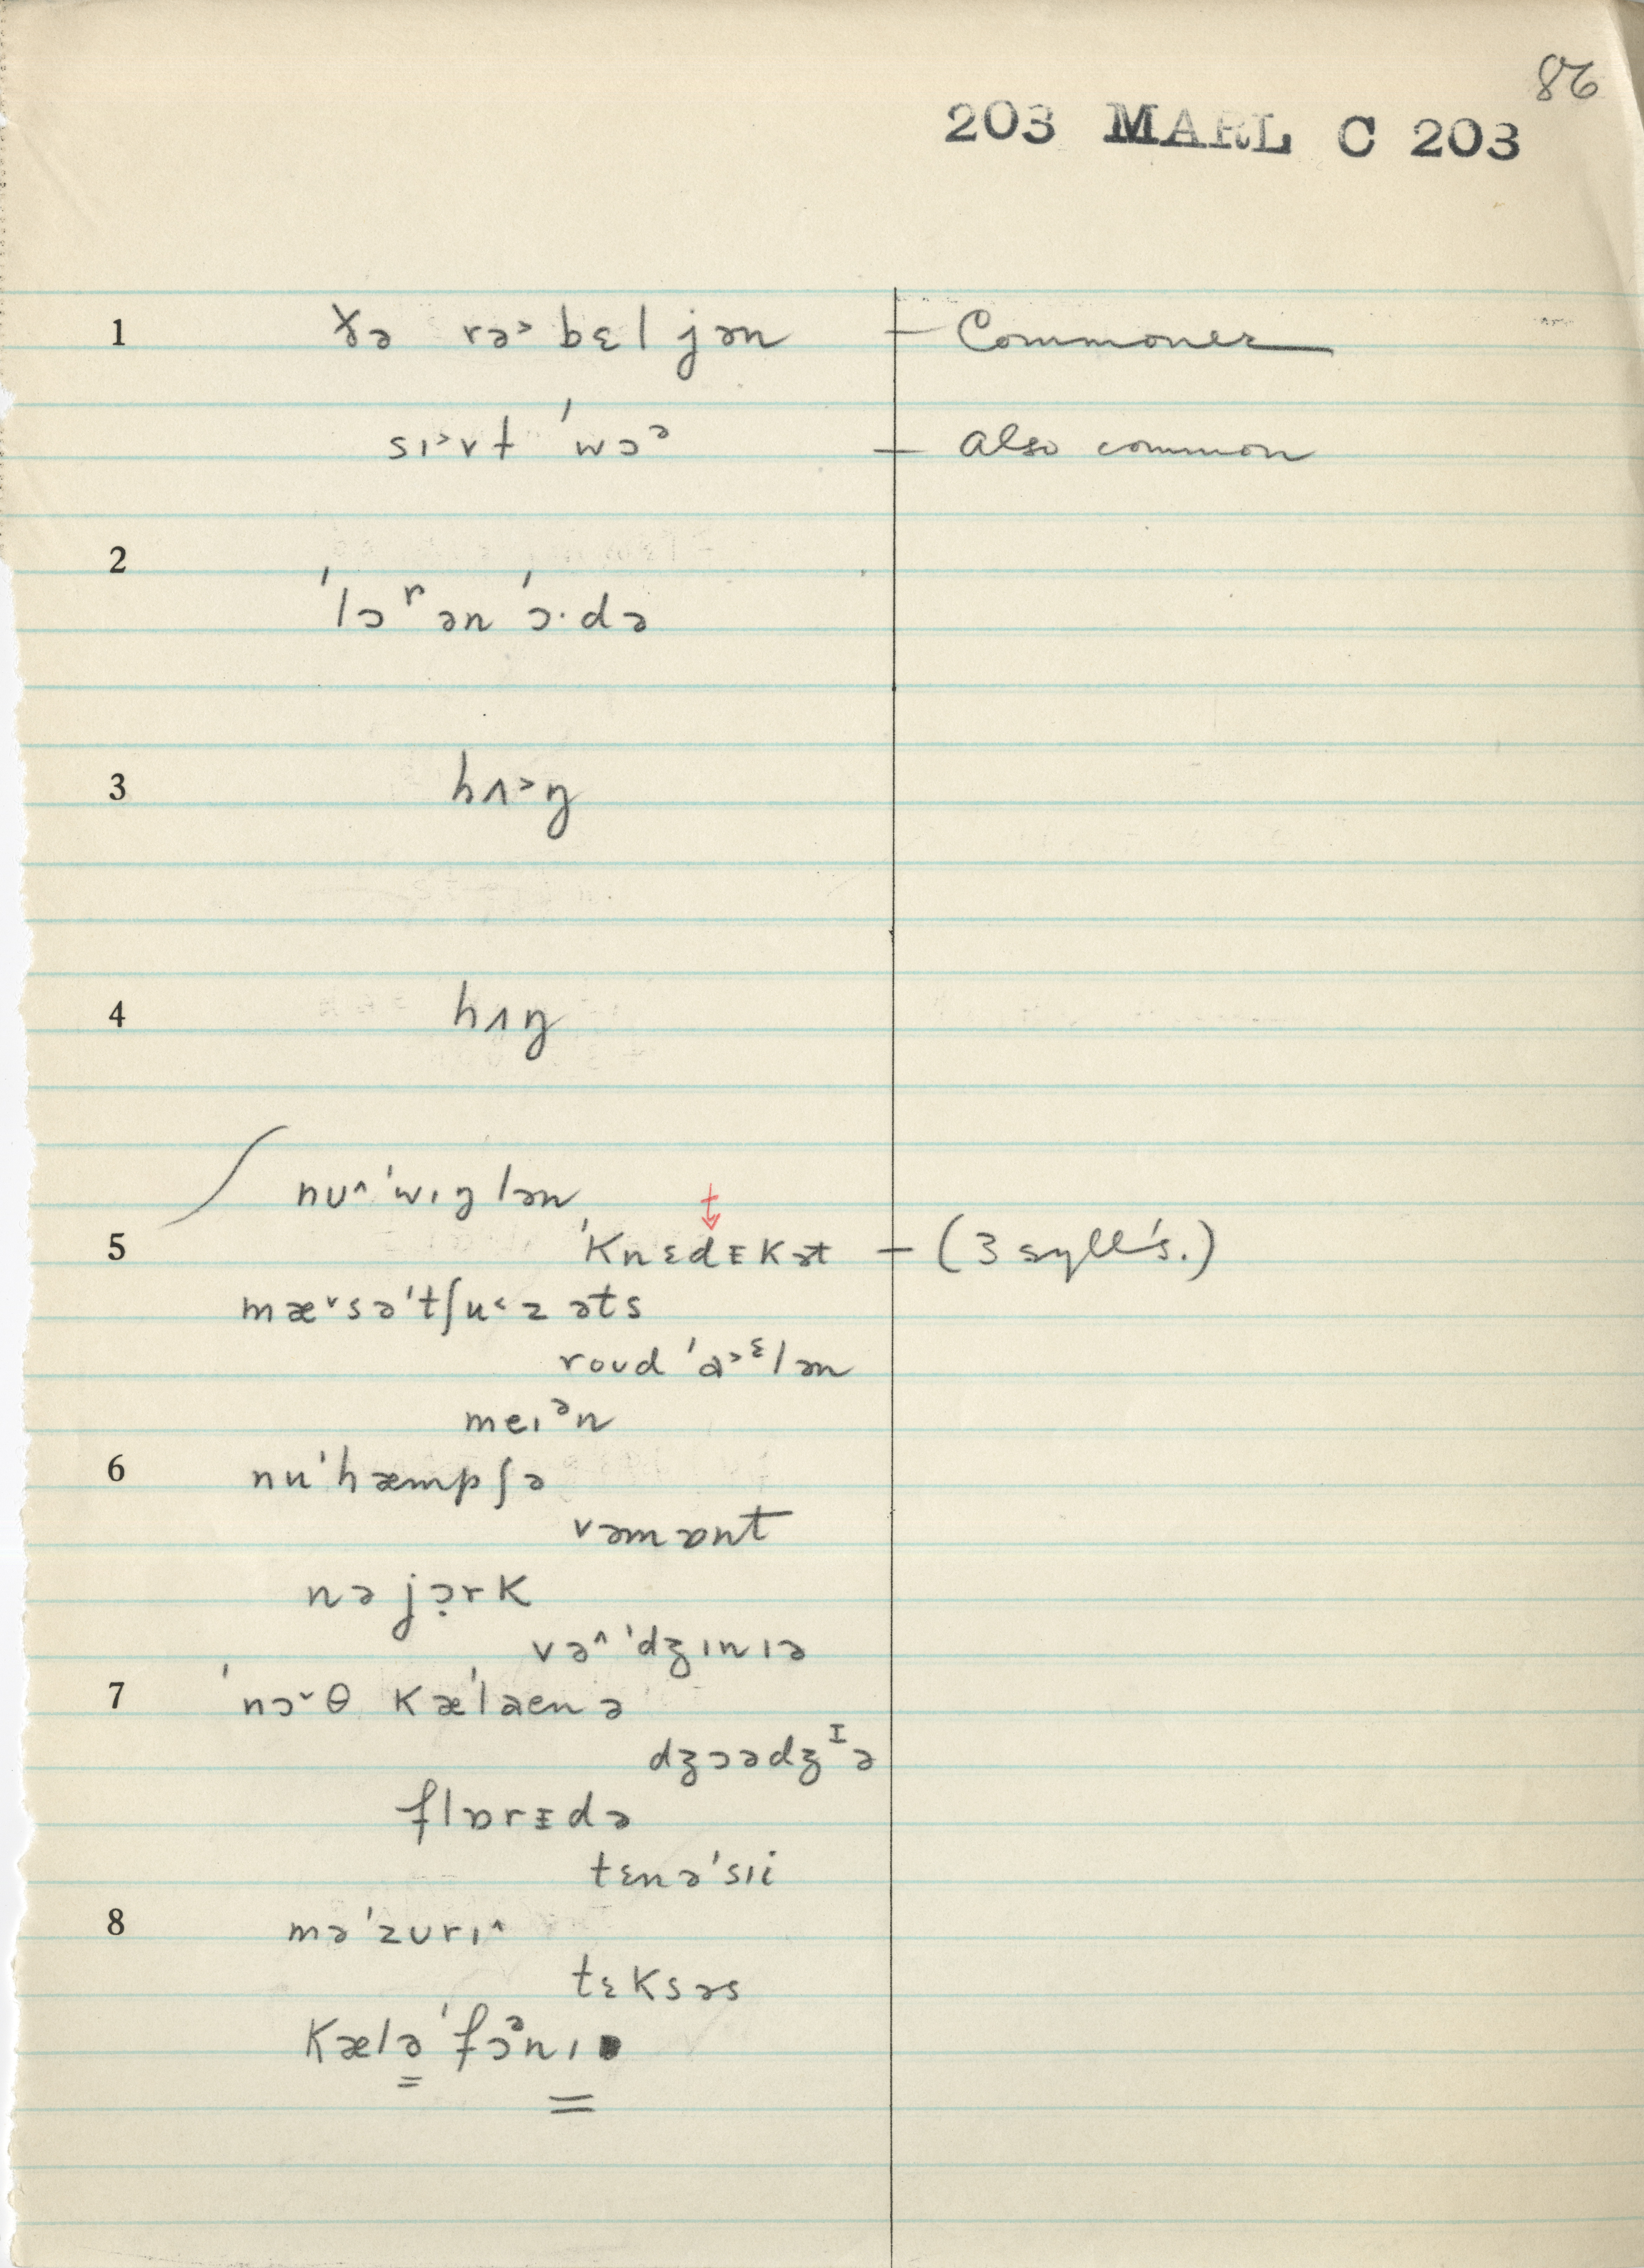 86
203 MARL C 203
1 ɣə rə˃bɛljən – Commoner
sɪ˃vɫ ˈwɔᵊ – also common
2
ˈlɔʳən ˈɔ·də
3 hʌ˃ŋ
4 hʌŋ
nʊ^ˈwɪŋlən
t
5 ˈKnɛdᵻKət – (3 syll's.)
mæ˅səˈtʃu˂zəts
roʊd ˈɑ˃ᵋlən
meɪᵊn
6 nuˈhæmpʃə
vəmɒnt
nəjɔ̣rK
və^ˈdʒɪnɪə
7 ˈnɔ˅θ Kæˈlaenə
dʒɔədʒᴵə
flɒrᵻdə
tɛnəˈsɪi
8 məˈzʊrɪ^
tɛKsəs
Kæləˈfɔᵊnɪ